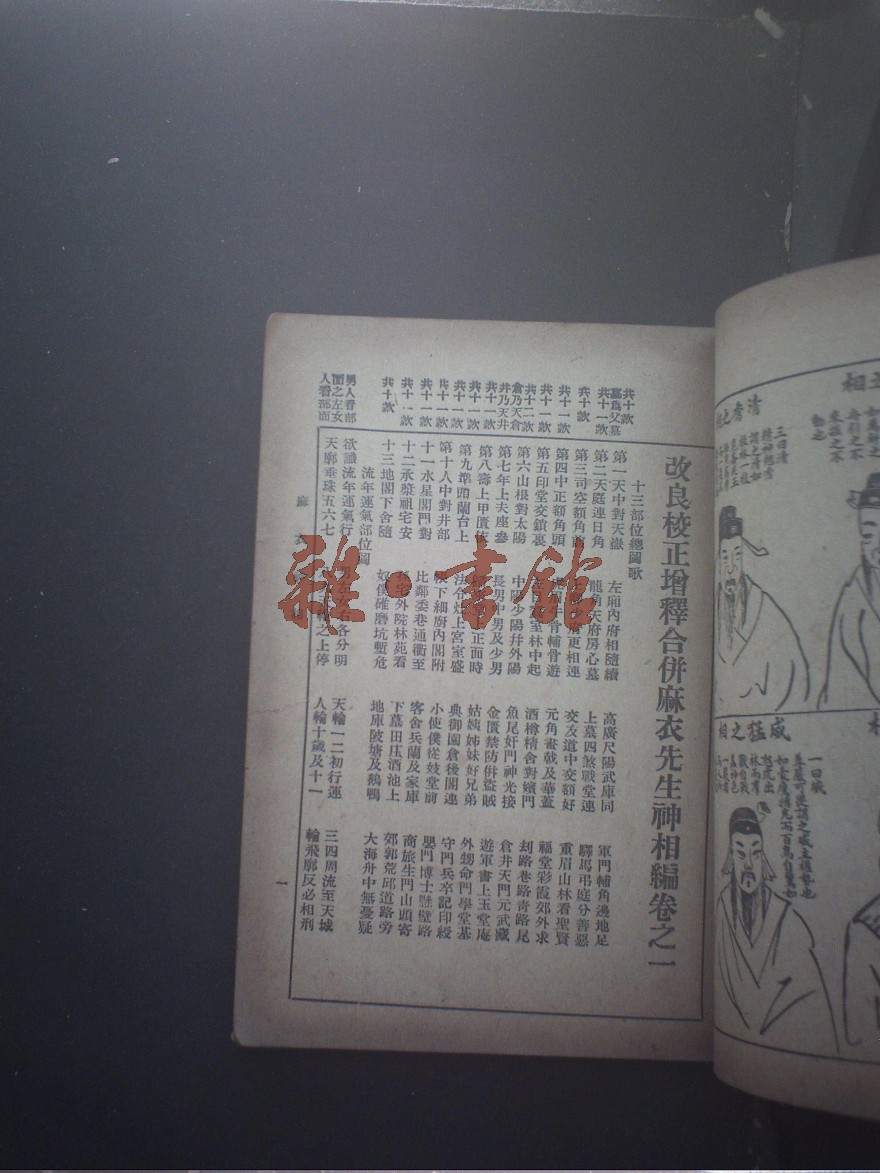 清奇之相
三曰清
威猛之相
一曰威
改良校正增釋合併麻衣先生神相編卷之一
十三部位總圖歌
共十款 第一天中對天嶽 左廂內府相隨續 高廣尺陽武庫同 軍門輔角邊地足
墓爲父墓共十一款 第二天庭連日角 龍角天府房心墓 上墓四煞戰堂連 驛馬弔庭分善惡
共十款 第三司空額角前 府更相連 交友道中交額好 重眉山林看聖賢
共十一款 第四中正額角頭 骨輔骨遊 元角畫戟及華蓋 福堂彩霞郊外求
共十一款 第五印堂交鎖裏 室林中起 酒樽精舍對嬪門 刦路巷路靑路尾
倉乃天倉共十二款 第六山根對太陽 中陽少陽幷外陽 魚尾奸門神光接 倉井天門元武藏
井乃天井共十一款 第七年上夫座參 長男中男及少男 金匱禁房併盜賊 遊軍書上玉堂庵
共十一款 第八壽上甲匱依 正面時 姑姨姊妹好兄弟 外甥命門學堂基
共十一款 第九準頭蘭台上 法令灶上宮室盛 典御園倉後閣連 守門兵卒記印綬
共十一款 第十人中對井部 帳下細廚內閣附 小使僕從妓堂前 嬰門博士懸壁路
共十一款 十一水星閣門對 比鄰委巷通衢至 客舍兵蘭及家庫 商旅生門山頭寄
共十一款 十二承漿祖宅安 孫宅外院林苑看 下墓田庄酒池上 郊郭荒邱道路旁
共十款 十三地閣下舍隨 奴僕碓磨坑塹危 地庫陂塘及鵝鴨 大海舟中無憂疑
流年運氣部位圖
男人看部面之左女人看部面
欲識流年運氣行 右各分明 天輪一二初行運 三四周流至天城
天廓垂珠五六七 之上停 人輪十歲及十一 輪飛廓反必相刑
麻衣
一
雜·書館